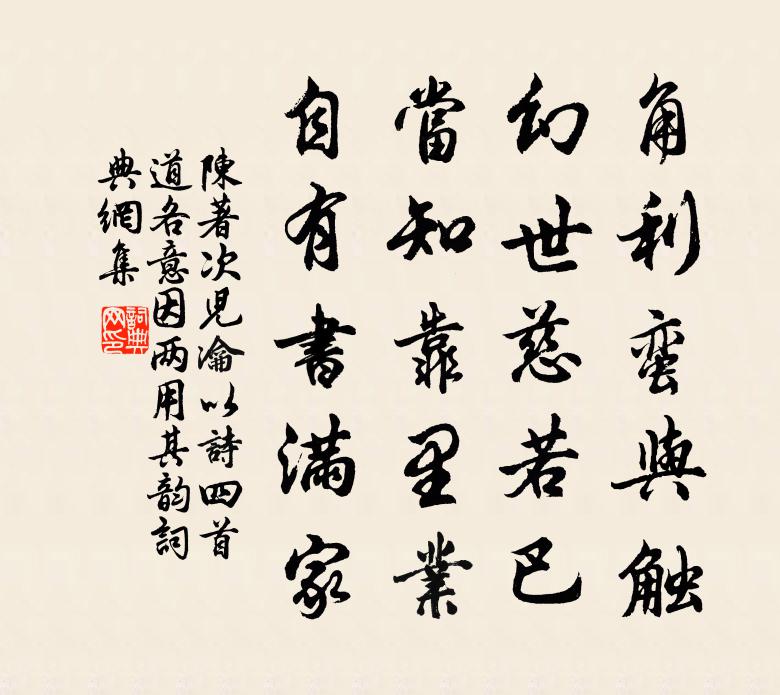 角利蛮與触
幻世慈若巴
當知靠里業
自有書滿家
陳著次兒瀹以詩四首
道各意因两用其韵詞
典網集
詞典网印